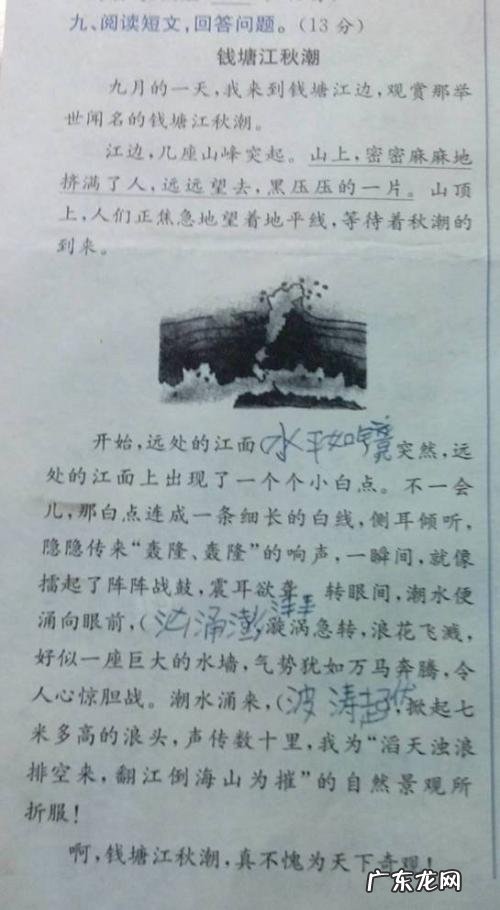 九、阅读短文,回答问题。(13分)
钱塘江秋潮
九月的一天,我来到钱塘江边,观赏那举
世闻名的钱塘江秋潮。
江边,几座山峰突起。山上,密密麻麻地
挤满了人,远远望去,黑压压的一片。山顶
上,人们正焦急地望着地平线,等待着秋潮的
到来。
开始,远处的江面(水平如镜突然,远
处的江面上出现了一个个小白点。不一会
儿,那白点连成一条细长的白线,侧耳倾听,
隐隐传来“轰隆、轰隆”的响声,一瞬间,就像
擂起了阵阵战鼓,震耳欲聋 转眼间,潮水便
涌向眼前,(汹涌澎湃漩涡急转,浪花飞溅,
好似一座巨大的水墙,气势犹如万马奔腾,令
人心惊胆战。潮水涌来,(波涛起伏,掀起七
米多高的浪头,声传数十里,我为“滔天浊浪
排空来,翻江倒海山为摧”的自然景观所
折服!
啊,钱塘江秋潮,真不愧为天下奇观!
广东龙网